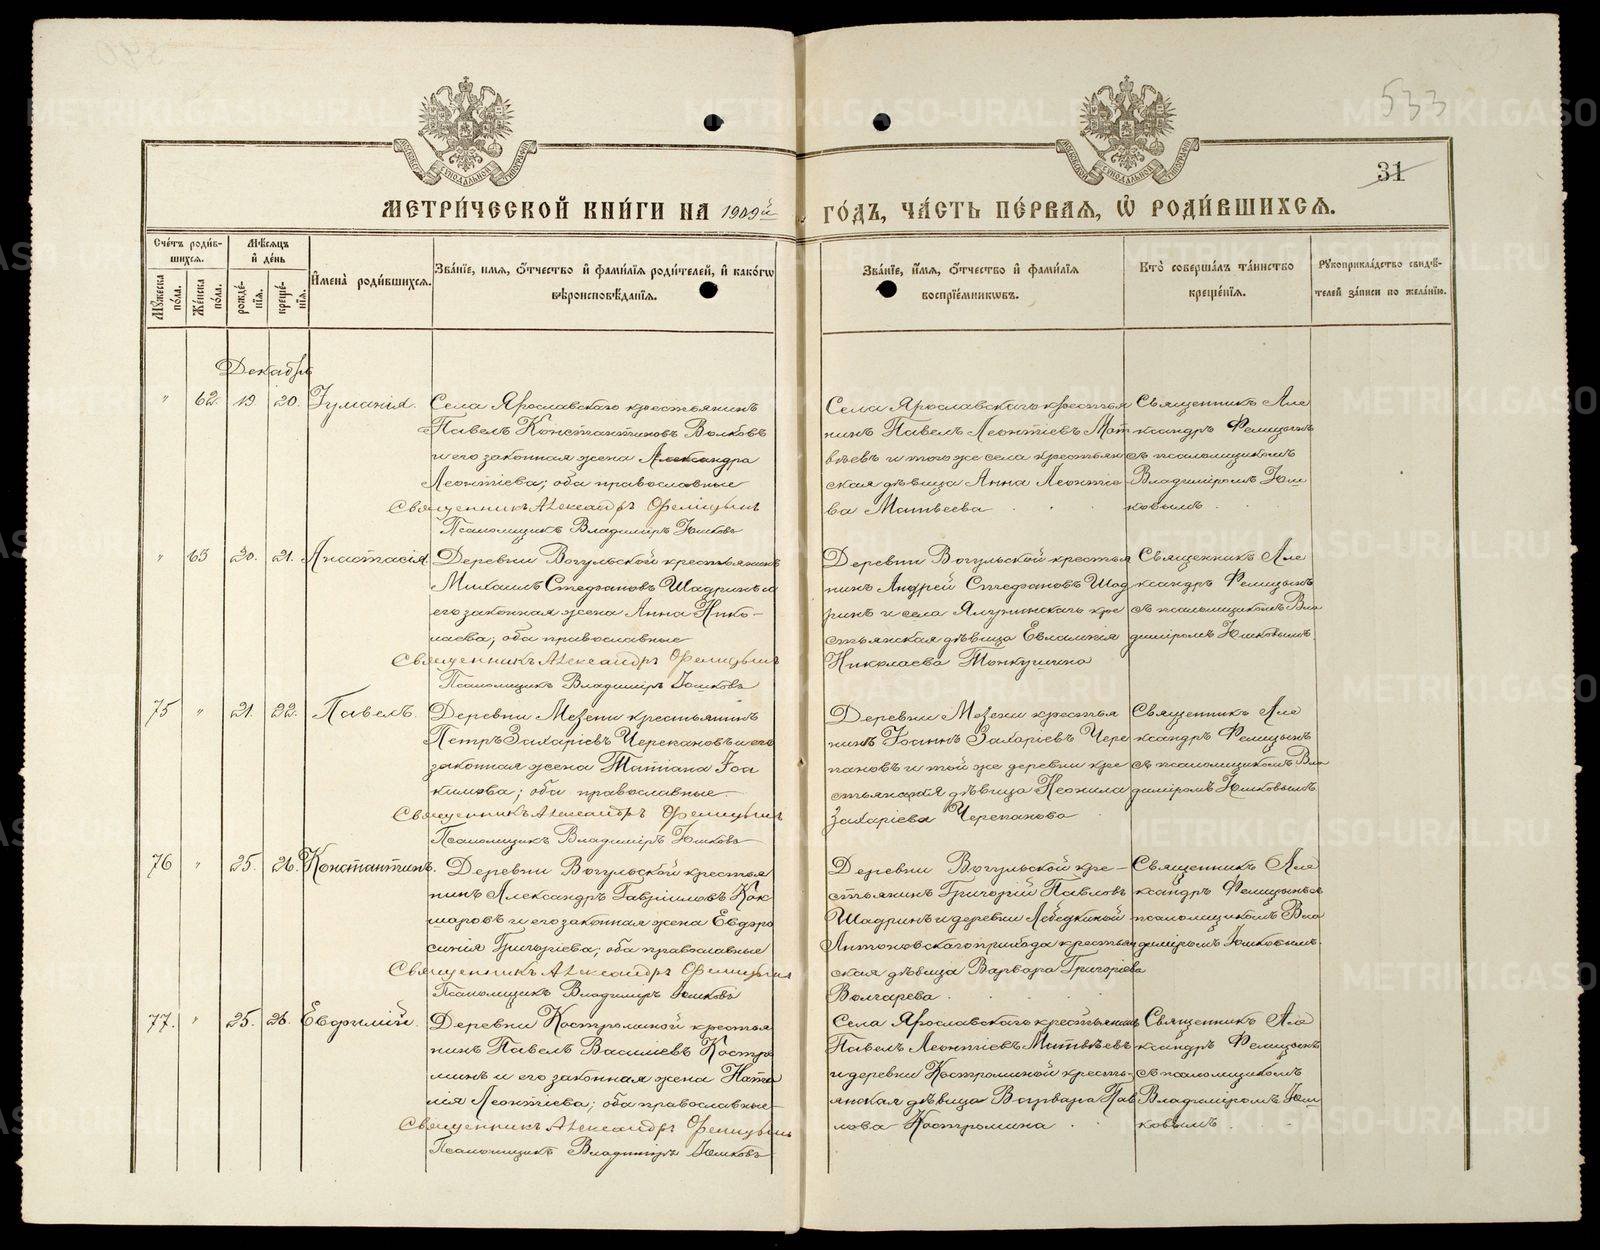 533
31
МЕТРИ́ЧЕСКОЙ КНИ́ГИ НА 1909й ГО́ДЪ, ЧА́СТЬ ПЕ́РВАЯ, Ѡ РОДИ́ВШИХСЯ.
Сче́тъ роди́вшихся.
Му́жеска по́ла.
Же́нска по́ла.
Мѣ́сяцъ и де́нь
рожде́нія.
креще́нія.
И҆мена̀ роди́вшихся.
Зва́нїе, имя, ѻ҆́тчество и҆ фами́лїя роди́телей, и҆ како́гѡ
вѣроисповѣ́данїя.
Зва́нїе, и҆́мя, ѻ҆́тчество и҆ фами́лїя
воспрїе́мникѡвъ.
Кто̀ соверша́лъ та́инство
креще́нїя.
Рукоприкла́дство свидѣ́-
телей за́писи по жела́нїю.
Декабрь
" 62. 19 20. Іуманія.
Села Ярославскаго крестьянинъ
Павелъ Константиновъ Волковъ
и его законная жена Александра
Леонтіева; оба православные
Священникъ Александръ Фелицынъ
Псаломщикъ Владиміръ Юшковъ
Села Ярославскаго крестья
нинъ Павелъ Леонтіевъ Мат
вѣевъ и того же села крестьян
ская дѣвица Анна Леонтіе
ва Матвеева
Священникъ Але
ксандръ Фелицынъ
съ псаломщикомъ
Владиміромъ Юш
ковымъ
" 65 20. 21. Анастасія.
Деревни Вогульской крестьянинъ
Михаилъ Стефановъ Шадринъ и
его законная жена Анна Нико-
лаева; оба православные
Священникъ Александръ Фелицынъ
Псаломщикъ Владиміръ Юшковъ
Деревни Вогульской крестья
нинъ Андрей Стефановъ Шад
ринъ и села Ялунинскаго кре
стьянская дѣвица Евлампія
Николаева Тонкушина
Священникъ Але
ксандръ Фелицынъ
съ псаломщикомъ Вла
диміромъ Юшковымъ.
75 " 21. 22. Павелъ.
Деревни Мезени крестьянинъ
Петръ Захаріевъ Черепановъ и его
законная жена Татіана Іоа
кимова; оба православные
Священникъ Александръ Фелицынъ
Псаломщикъ Владиміръ Юшковъ
Деревни Мезени крестья
нинъ Іоаннъ Захаріевъ Чере
пановъ и той же деревни кре
стьянская дѣвица Неонила
Захаріева Черепанова
Священникъ Але
ксандръ Фелицынъ
съ псаломщикомъ Вла
диміромъ Юшковымъ
76 " 25. 26. Константинъ.
Деревни Вогульской крестья
нинъ Александръ Гавріиловъ Кок
шаровъ и его законная жена Евфро
синія Григоріева; оба православные
Священникъ Александръ Фелицынъ
Псаломщикъ Владиміръ Юшковъ
Деревни Вогульской кре-
стьянинъ Григорій Павловъ
Шадринъ и деревни Лебедкиной
Антоновскаго прихода крестьян
ская дѣвица Варвара Григоріева
Волгарева
Священникъ Але
ксандръ Фелицынъ съ
псаломщикомъ Вла
диміромъ Юшковымъ.
77. " 25. 26. Евфимій.
Деревни Костроминой крестья
нинъ Павелъ Василіевъ Костро
минъ и его законная жена Ната
лія Леонтіева; оба православные
Священникъ Александръ Фелицынъ
Псаломщикъ Владиміръ Юшковъ
Села Ярославскаго крестьянинъ
Павелъ Леонтіевъ Матвѣевъ
и деревни Костроминой кресть-
янская дѣвица Варвара Пав
лова Костромина
Священникъ Але
ксандръ Фелицынъ
съ псаломщикомъ
Владиміромъ Юш
ковымъ
METRIKI.GASO-URAL.RU